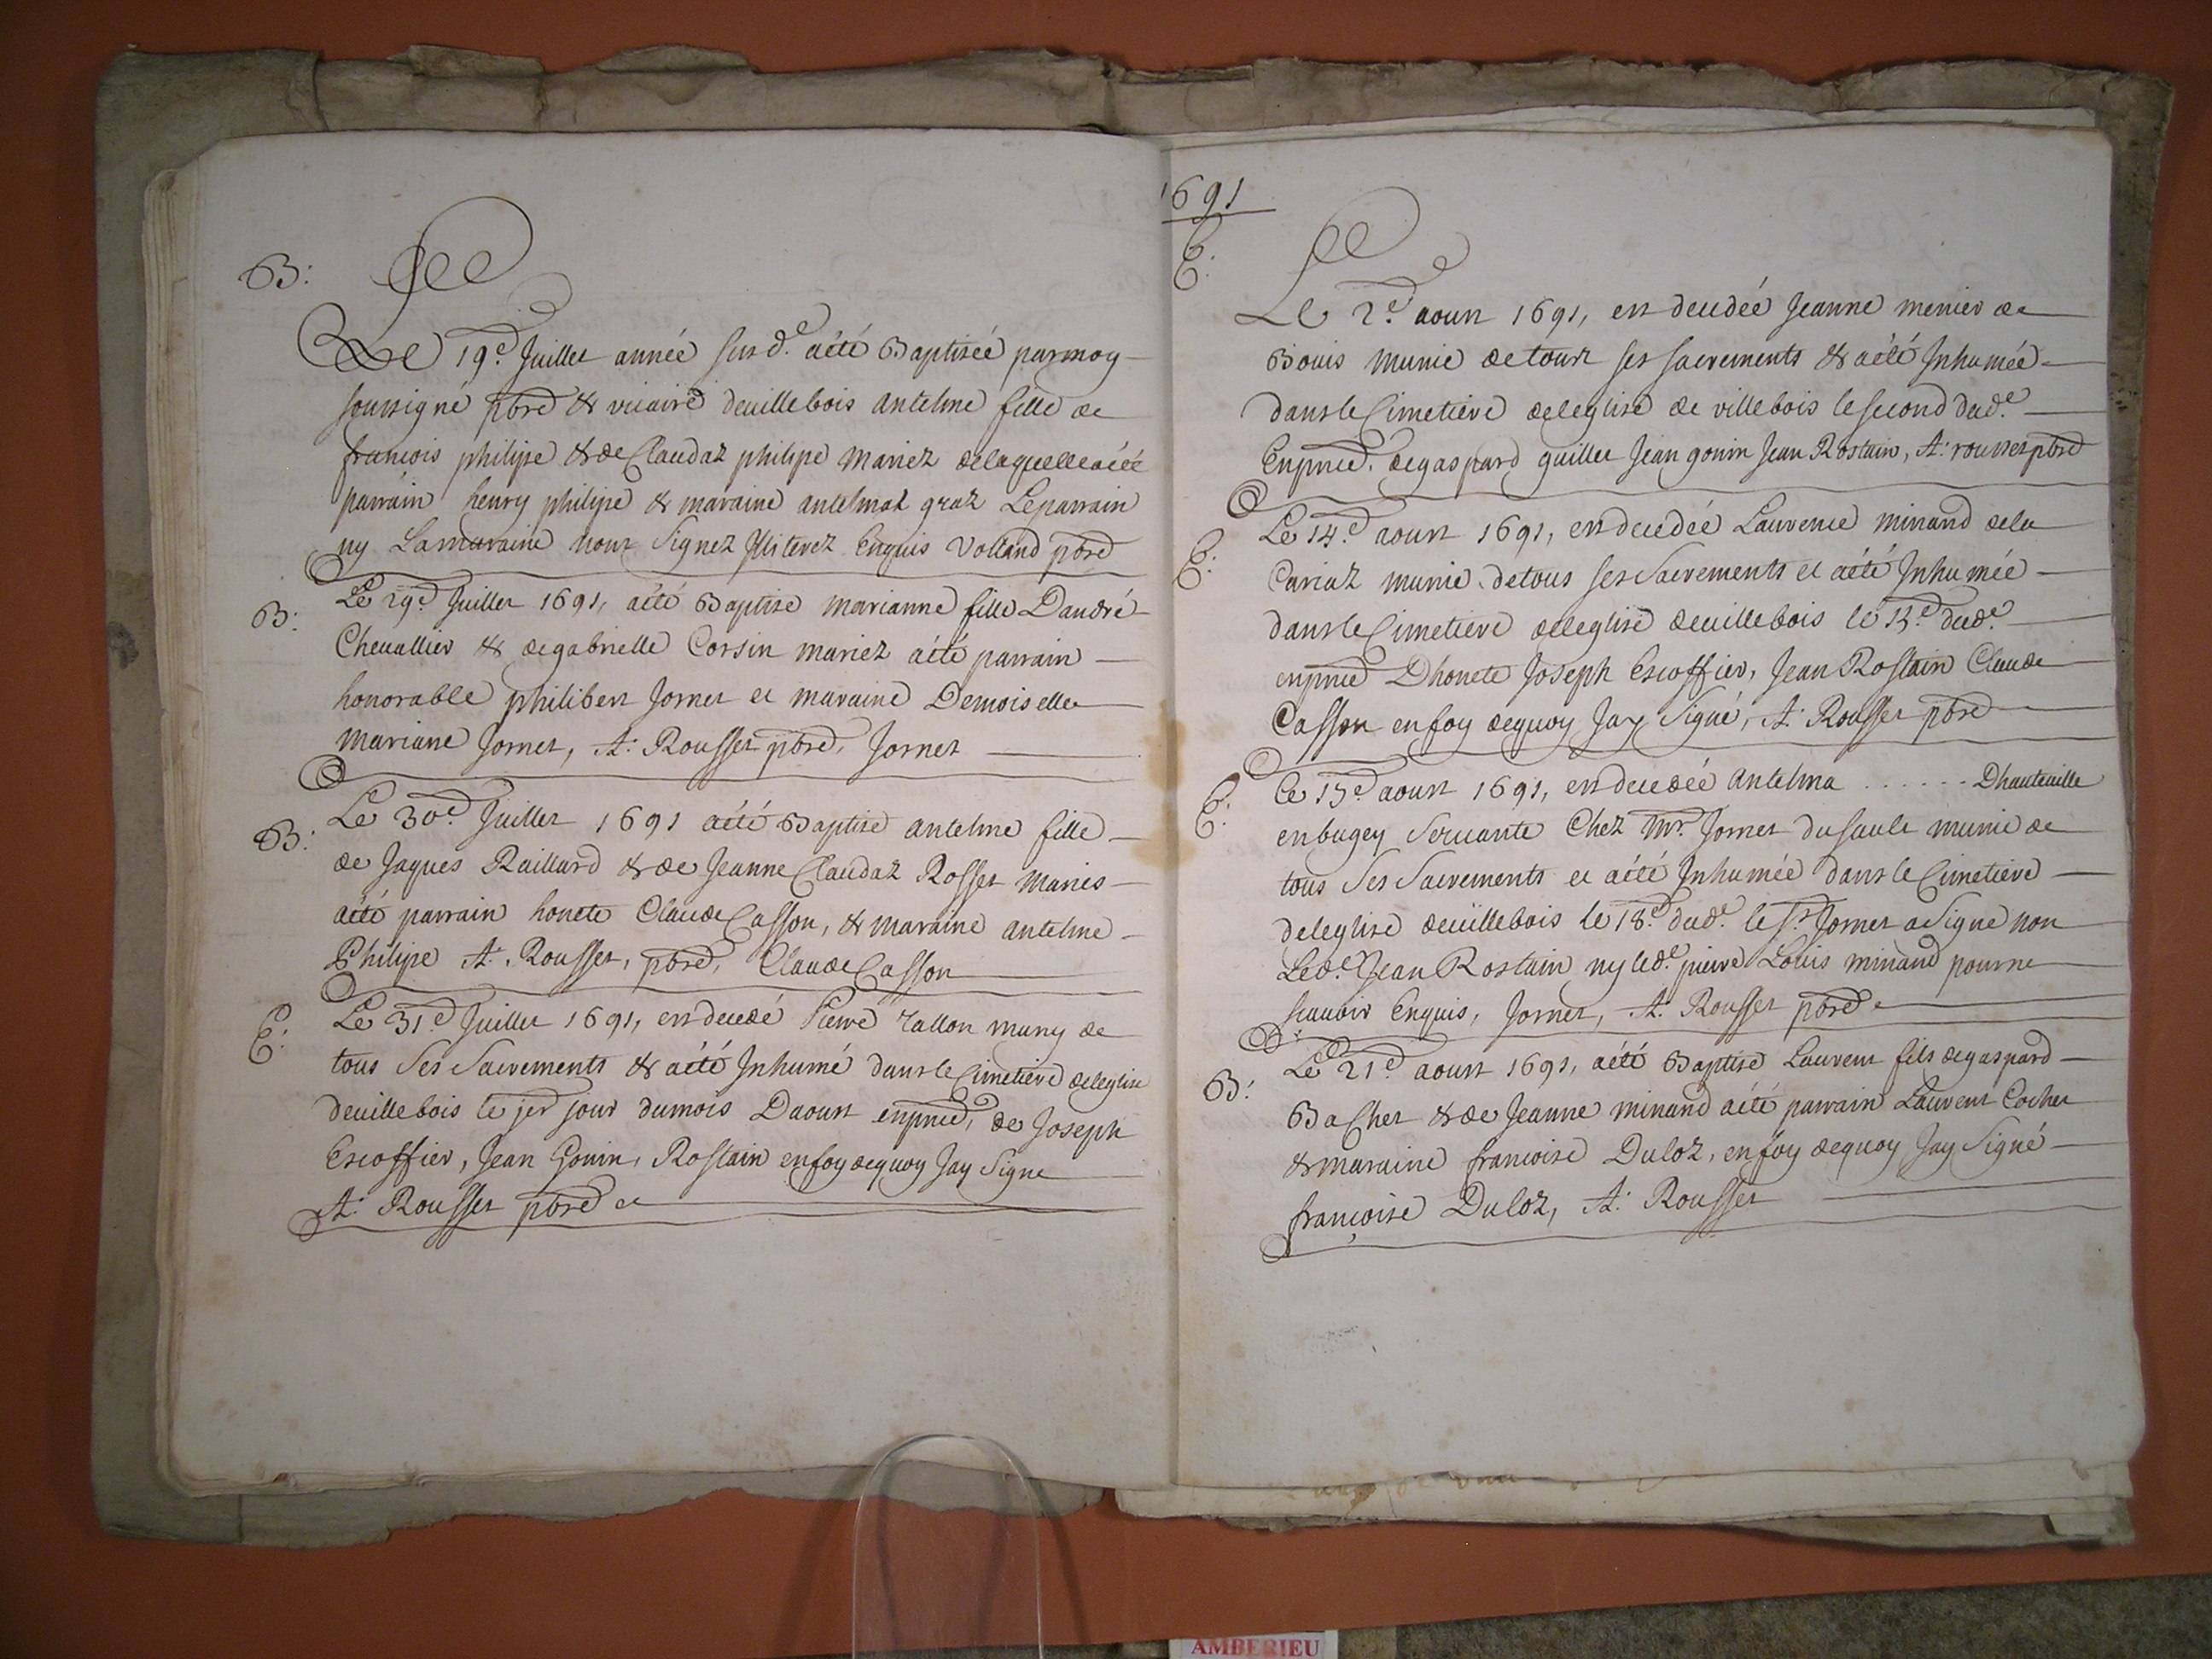 B:
Le 19.e Juillet année susd.e aété Baptiséé parmoy
soussigné pbre & vicaire deuillebois antelme fille de
francois philipe & de Claudaz philipe Mariez delaquelleaété
parrain henry philipe & maraine antelmaz graz Leparrain
ny Lamaraine nont Signez Illiterez Enquis Volland pbre
B:
Le 29.e Juillet 1691, aété Baptise marianne fille Dandré
Cheuallier & degabrielle Corsin mariez aété parrain
honorable philibert Jornet et maraine Demoiselle
mariane Jornet, A: Rousset pbre, Jornet
B:
Le 30.e Juillet 1691 aété Baptise antelme fille
de Jaques Raillard & de Jeanne Claudaz Rosset Maries
aété parrain honete Claude Casson, & maraine antelme
Philipe A. Rousset, pbre, Claude Casson
E:
Le 31.e Juillet 1691, est decedé Pierre rallon muny de
tous Ses Sacrements & aété Inhumé dansle Cimetiere deleglise
deuillebois le jer jour dumois Daoust enpnce, de Joseph
Escoffier, Jean Gonin, Rostain enfoy dequoy Jay Signe
A: Rousset pbre
1691
E:
Le 2.e aoust 1691, est decedéé Jeanne menier de
Bouis munie detoust ses sacrements & aété Inhumée
dansle Cimetiere deleglise de villebois lesecond dud.e
Enpnce. degaspard guillet Jean gonin Jean Rostain, A: rousset pbre
E:
Le 14.e aoust 1691, est decedéé Laurence minand dela
Cariaz munie detous ses Sacrements et aété Inhumée
dansle Cimetiere deleglise deuillebois le 15.e dud.e
enpnce Dhonete Joseph Escoffier, Jean Rostain Claude
Casson enfoy dequoy Jay Signé, A: Rousset pbre
E:
Le 15.e aoust 1691, est decedéé antelma . . . . . . Dhauteuille
enbugey Seruante Chez Mr. Jornet dusault munie de
tous Ses Sacrements et aété Inhumée dansle Cimetiere
deleglise deuillebois le 18.e dud.e le Sr. Jornet aSigne non
Led.e Jean Rostain ny led.e pierre Louis minand pourne
scauoir Enquis, Jornet, A. Rousset pbre
B:
Le 21.e aoust 1691, aété Baptise Laurent fils degaspard
BaChet & de Jeanne minand aété parrain Laurent Cochet
& maraine francoise Duloz, enfoy dequoy Jay Signé
françoise Duloz, A: Rousset
AMBERIEU